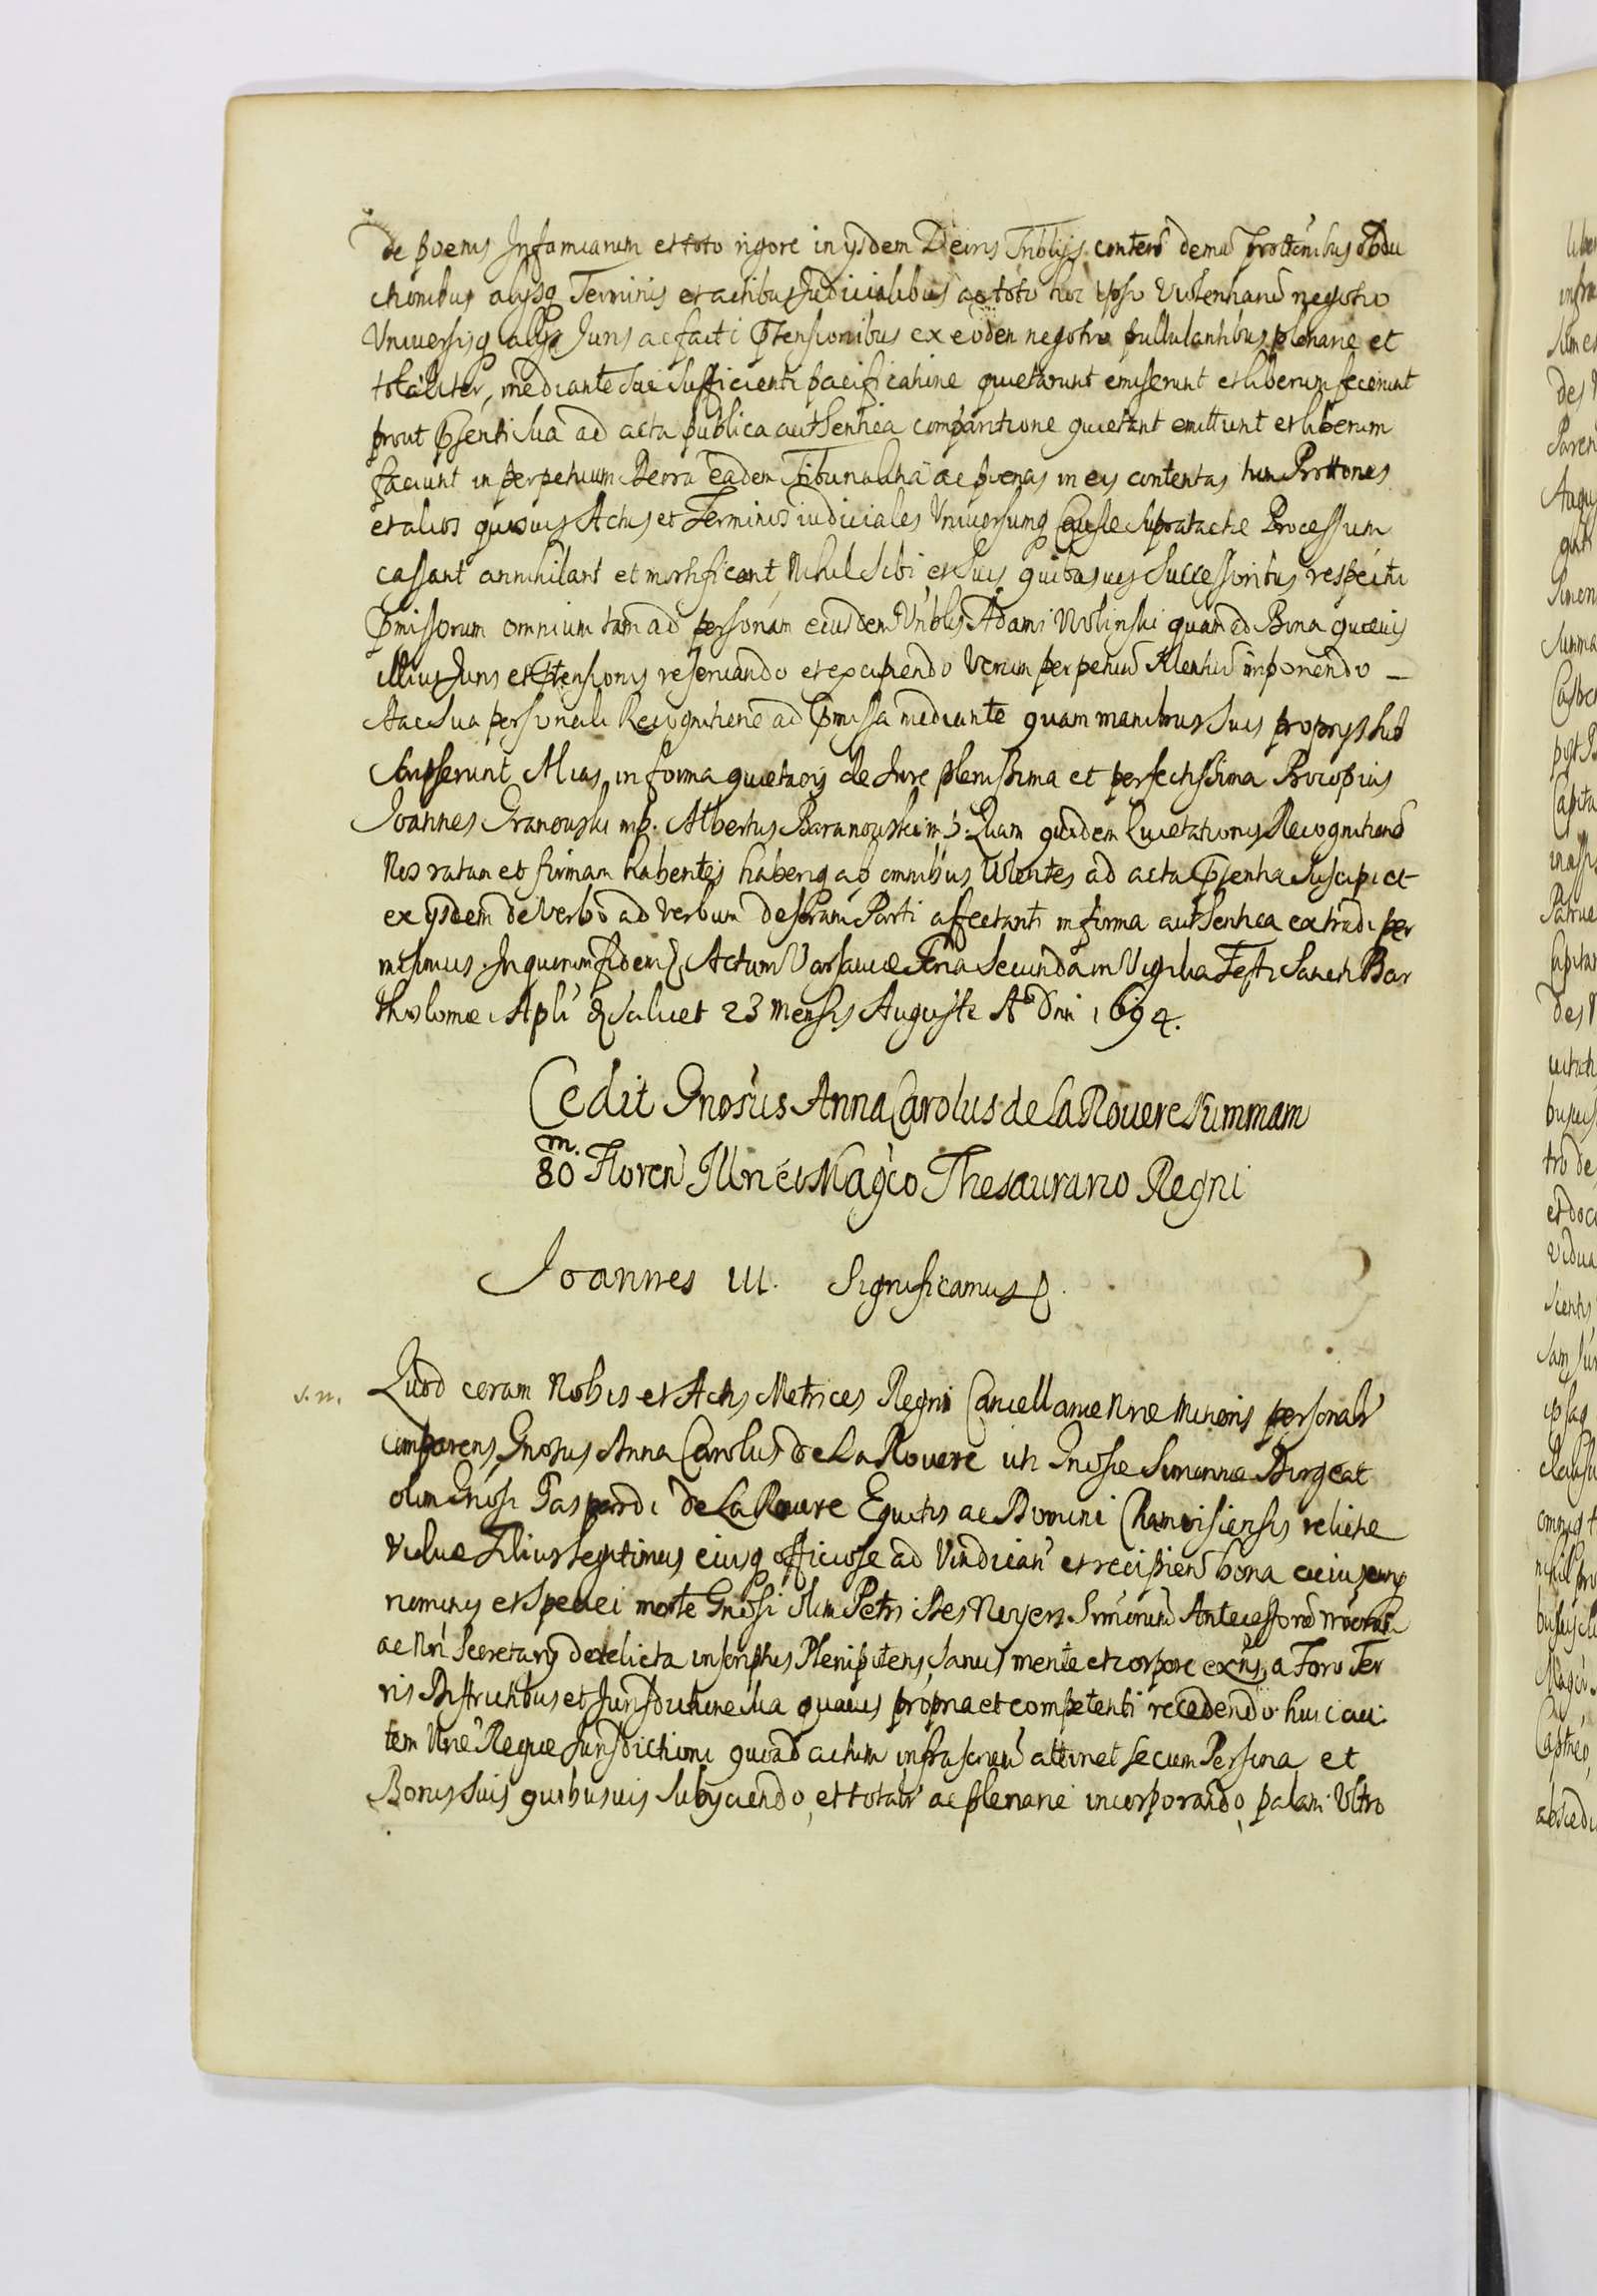 de poenis Infamiarum et toto rigore in ijsdem Decris Tribljs. content demũ prottõnibus obdu
ctionibus alijsq Terminis et actibus Judicialibus ac toto hoc ipso Violentiarũ negotio
Vniversisq alijsq Juris ac facti Ptensionibus ex eodem negotio pullulantibus plenarie et
totaliter, mediante sui sufficienti pacificatione quietarunt emiserunt et liberum fecerunt
prout Psenti sua ad acta publica authentica comparitione quietant emittunt et liberum
faciunt in perpetuum Decra eadem Tribunalitia ac poenas in eis contentas tum Prottones
et alios quosvis Actus et Terminos iudiciales Vniversumq Causae supratactae Processum
cassant annihilant et mortificant, Nihil sibi et suis quibusvis Successoribus respectu
Pmissorum omnium tam ad personam eiusdem Vrblis Adami Wolinski quam ad Bona quaevis
illius Juris et Ptensionis reservando et excipiendo Verum perpetuũ silentiũ imponendo –
Hac sua personali Recognitione ad Pmissa mediante quam manibus suis proprijs sub
scripserunt Alias in forma quietaois de Jure plenissima et perfectissima Procopius
Joannes Granowski mp. Albertus Baranowski m p. Quam quidem Quietationis Recognitionẽ
Nos ratam et firmam habentes haberiq ab omnibus Volentes ad acta Psentia suscipi et
ex ijsdem de verbo ad verbum descriptam Parti affectanti in forma authentica extradi per
misimus. In quorum fidem &. Actum Varsaviae Feria Secunda in Vigilia Festi Sancti Bar
tholomaei Apli & scilicet 23 Mensis Augusti Aº Dni 1694.
Cedit Gnosus Anna Carolus de La Rovere summam
m.
80 Floren Illri et Magco Thesaurario Regni
Joannes III. Significamus &.
s. n. Quod coram Nobis et Actis Metrices Regni Cancellariae Nrae Minoris personalr
comparens Gnosus Anna Carolus de La Rovere uti Gnosae Simonnae Burgeat
olim Gnosi Gaspardi de La Rovere Equitis ac Domini Chamoisiensis relictae
Viduae Filius legitimus eiusq officiose ad Vindican et recipien bona cuiuscunq
nominis et speciei morte Gnosi olim Petri Des Noyers Srmorum Antecessorũ nrorum
ac Nri Secretarij derelicta inscriptus Plenipotens, sanus mente et corpore exns, a Foro Ter
ris Districtibus et Jurisdictione sua quavis propria et competenti recedendo huic au
tem Nrae Regiae Jurisdictioni quoad actum infrascriptũ attinet se cum Persona et
Bonis suis quibusvis subijciendo, et totalr ac plenarie incorporando, palam Vltro